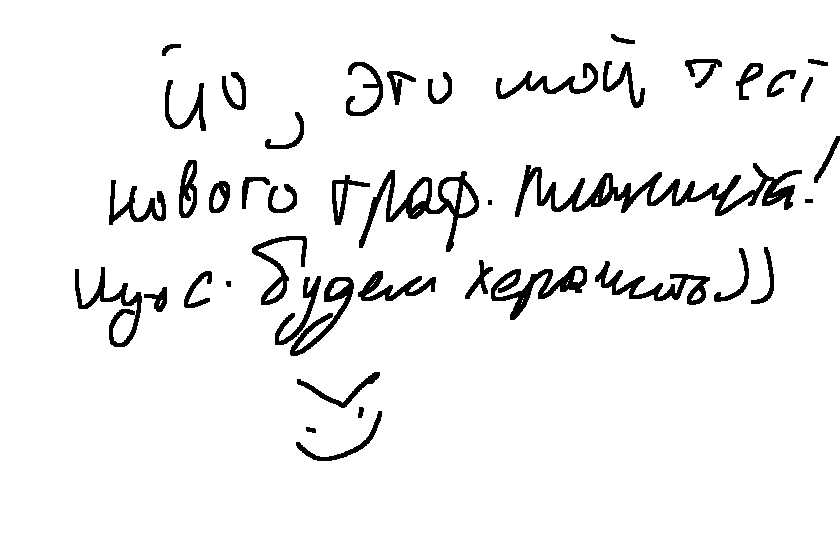 Йо, это мой тест
нового граф. планшета!
будем херачить))